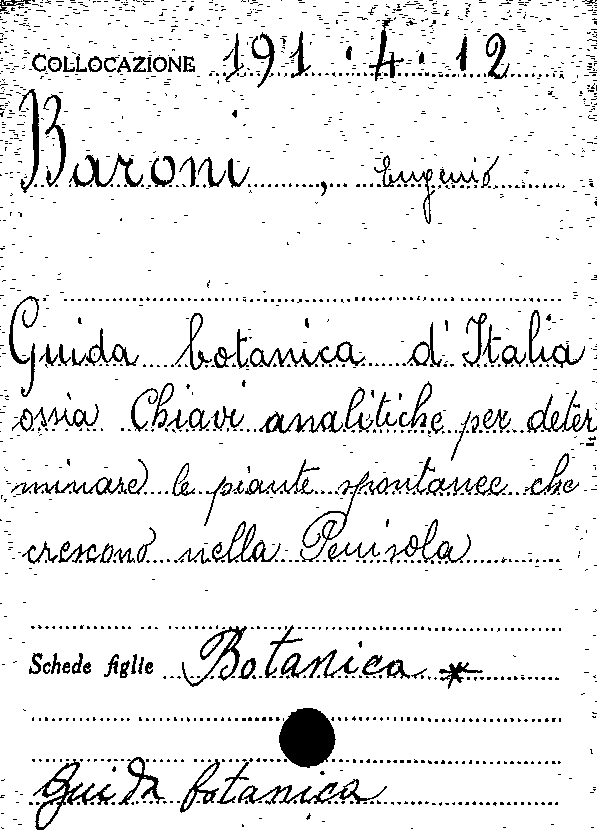 COLLOCAZIONE 191.4.12
Baroni, Eugenio
Guida botanica d'Italia
ossia Chiavi analitiche per deter
minare le piante spontanee che
crescono nella Penisola
Schede figlie Botanica *
Guida botanica